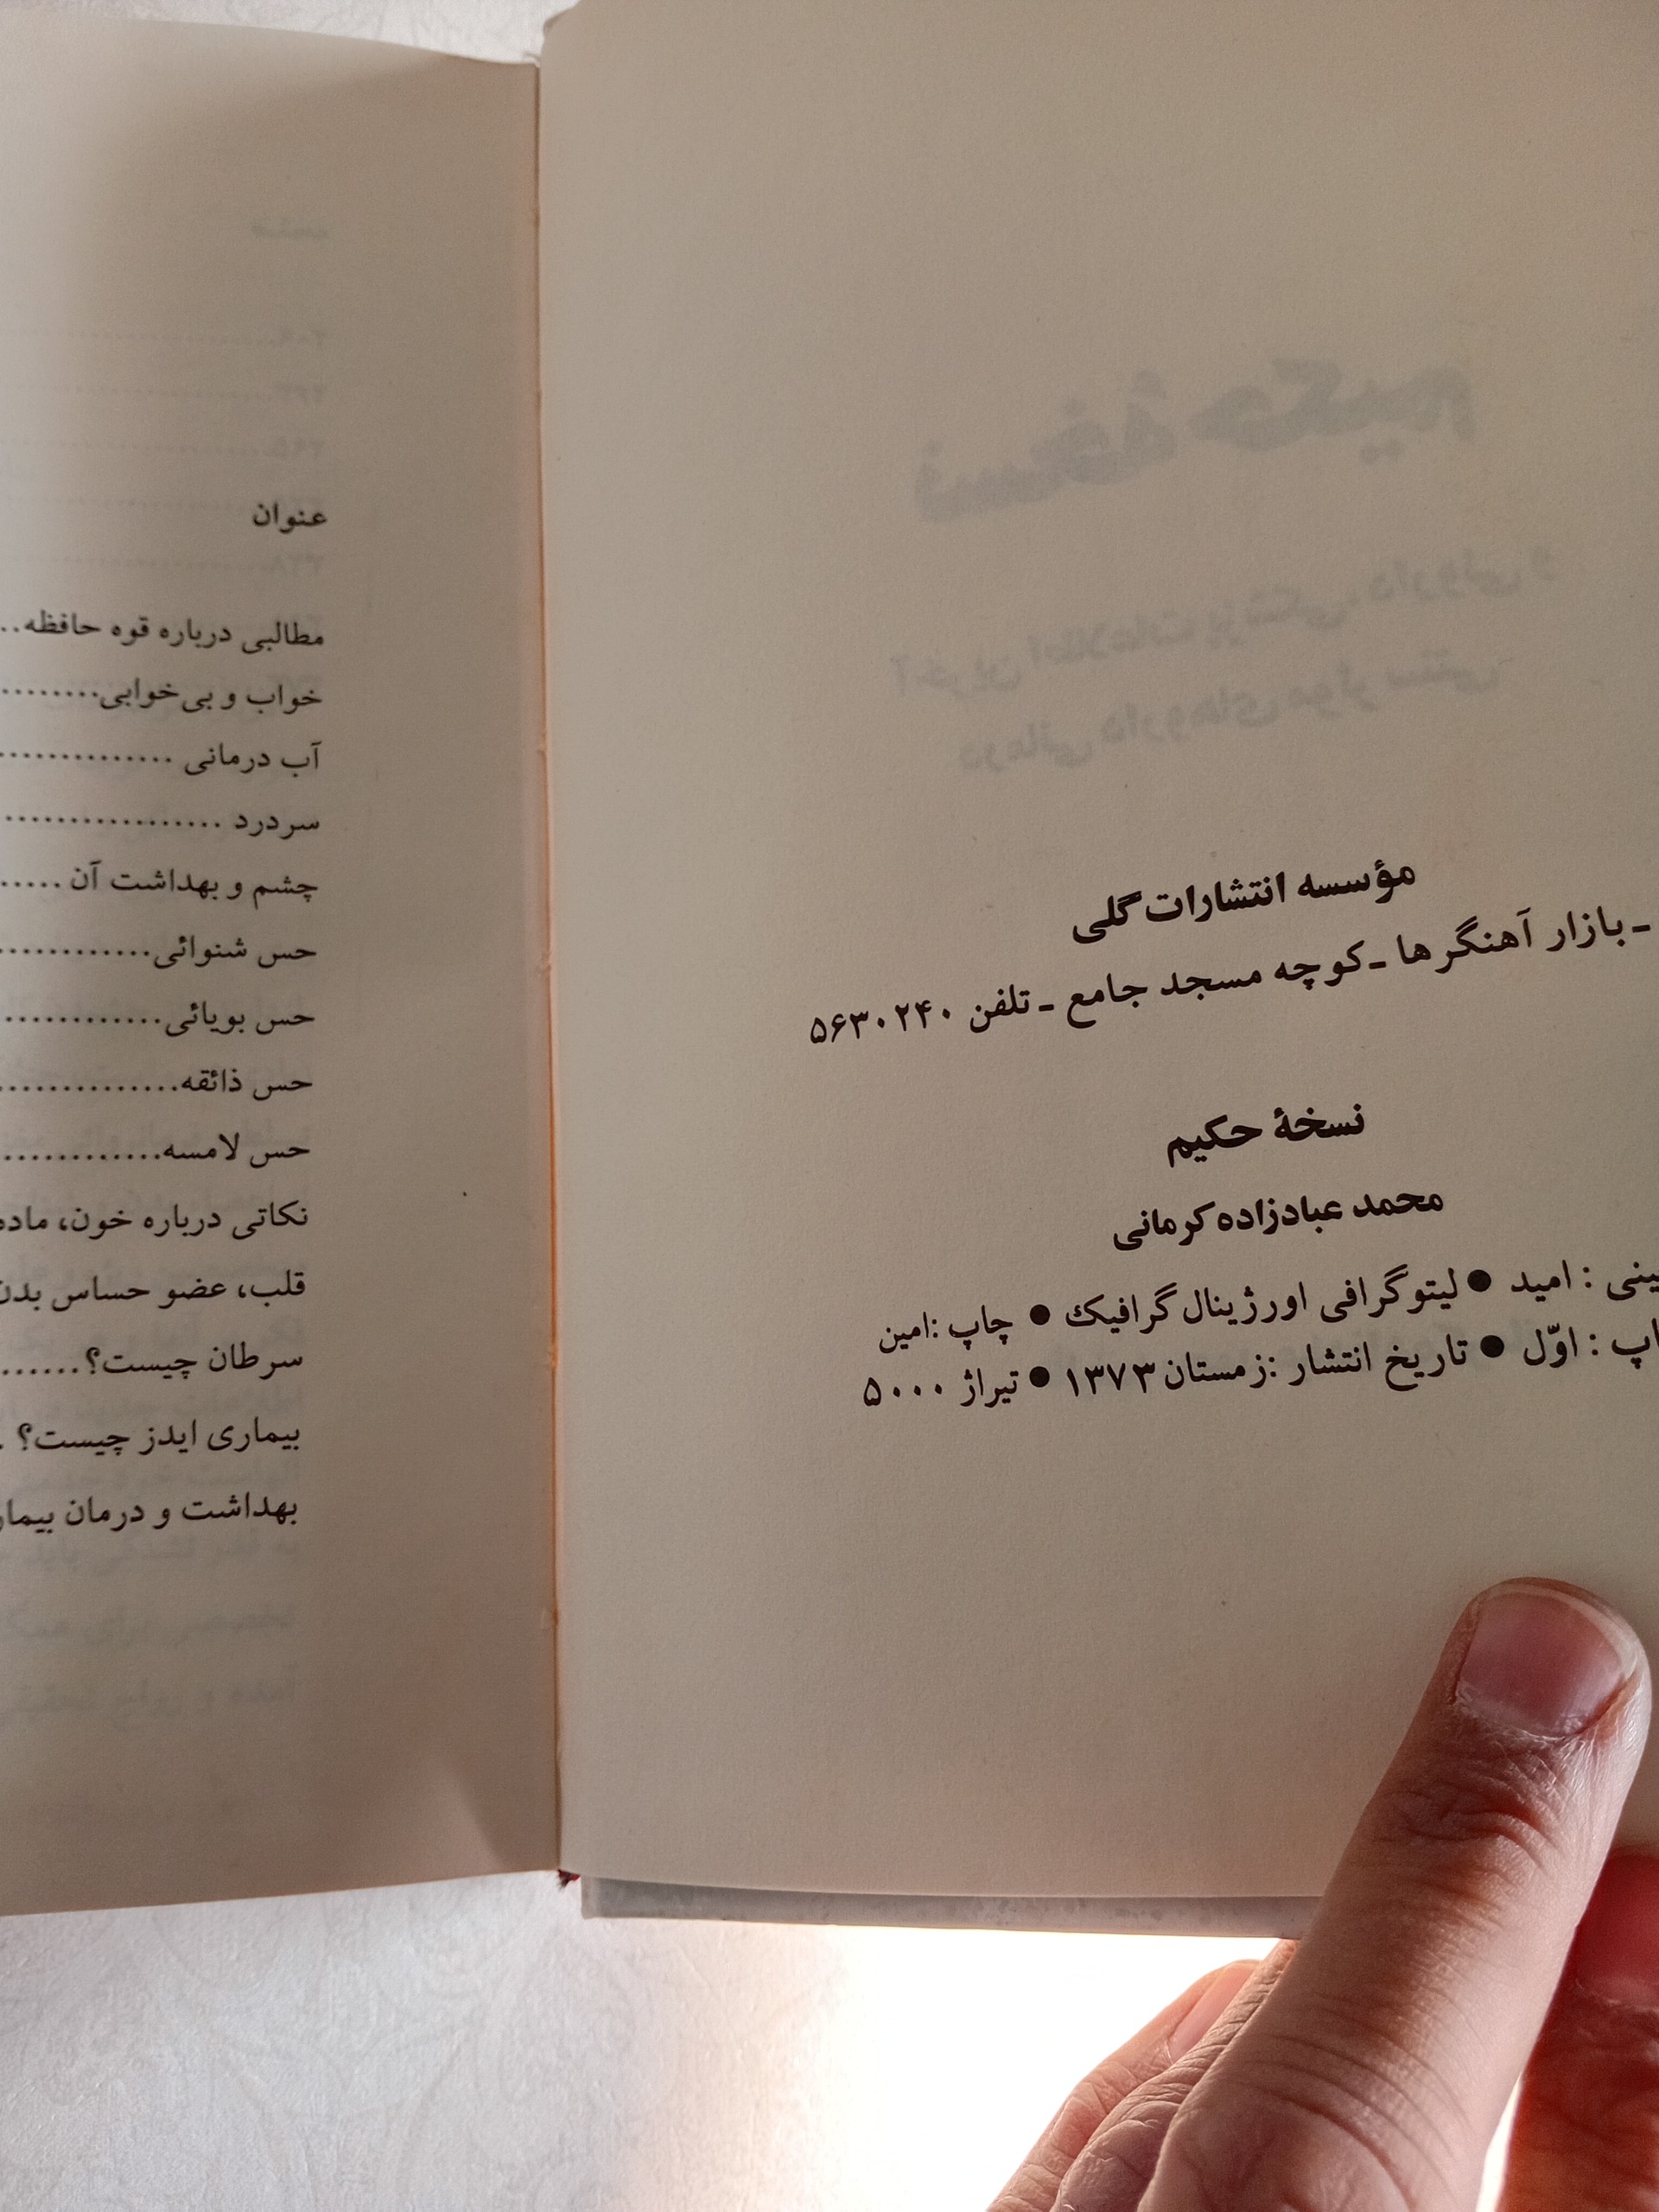 مؤسسه انتشارات گلی
ـ بازار آهنگرها ـ کوچه مسجد جامع ـ تلفن ۵۶۳۰۲۴۰
نسخهٔ حکیم
محمد عبادزاده کرمانی
ینی : امید ● لیتوگرافی اورژینال گرافیک ● چاپ :امین
اپ : اوّل ● تاریخ انتشار :زمستان ۱۳۷۳ ● تیراژ ۵۰۰۰
عنوان
مطالبی درباره قوه حافظه..
خواب و بی‌خوابی........
آب درمانی ..............
سردرد .................
چشم و بهداشت آن .....
حس شنوائی............
حس بویائی.............
حس ذائقه..............
حس لامسه............
نکاتی درباره خون، ماده
قلب، عضو حساس بدن
سرطان چیست؟.......
بیماری ایدز چیست؟ .
بهداشت و درمان بیمار